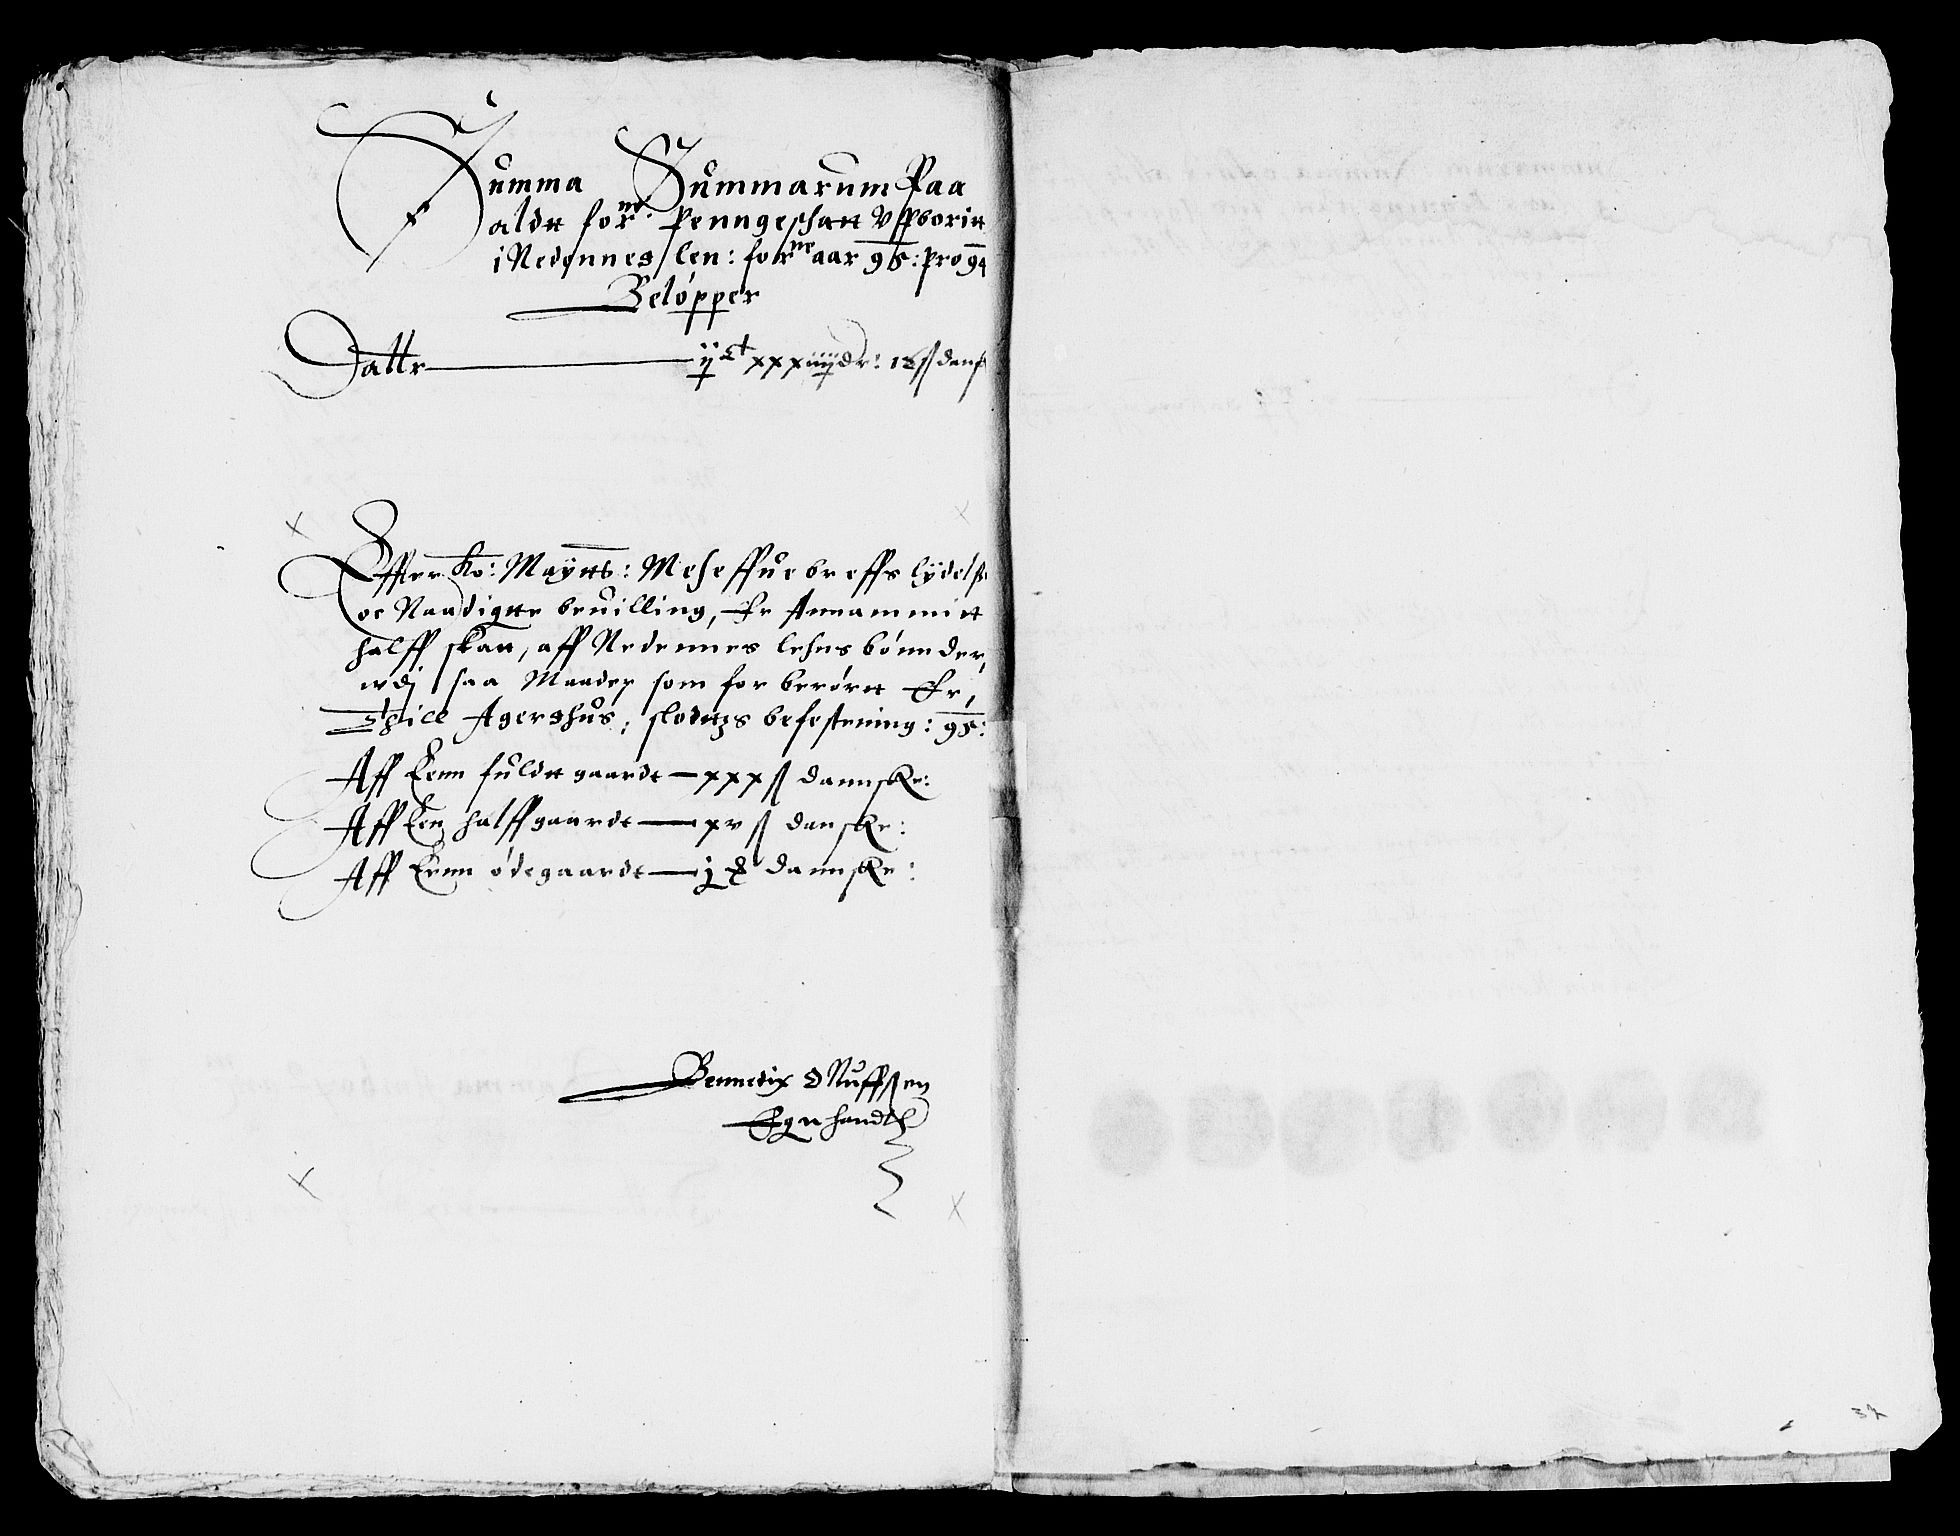 Summa Summarum Paa
aldtt forne: Penngeschatt Vppboritt
i Nedennes len: forne aar 95: pro 94
Beløpper
Dattr ijCt xxxiiiij dr: 18 ß dansk
Effter Ko: Maÿtts: Meheffue breffs lÿdelße
oc Naadigtte beuilling, Er Annammitt
halff skatt, aff Nedennes lehns bønnder,
udj saa Maader som forberørtt Er,
Thill Agershus, slodtzs befestening: 95:
Aff Eenn fuldtt gaardt xxx ß dannske:
Aff Een halff gaardt xv ß danske:
Aff Eenn ødegaardt j dannske:
Bennedix Nuffßen
Egn handt
37